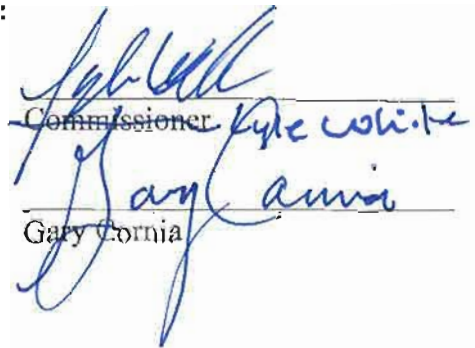 :
Commissioner Kyle White
Gary Cornia
Gary Cornia